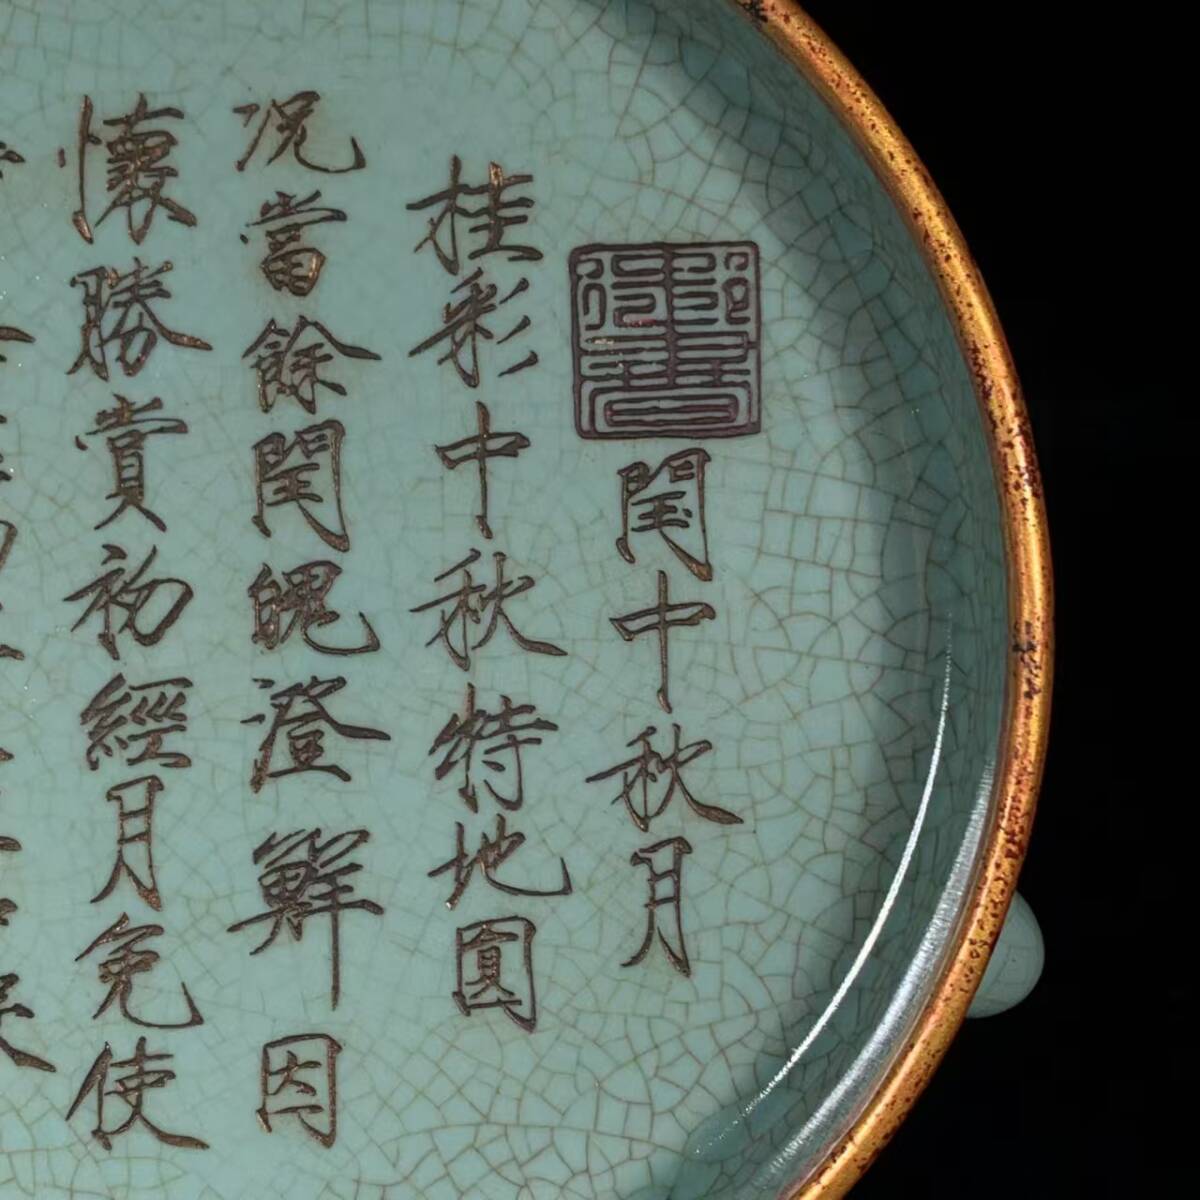 閏中秋月
桂彩中秋特地圓
況當餘閏魄澄鮮因
懷勝賞初經月免使